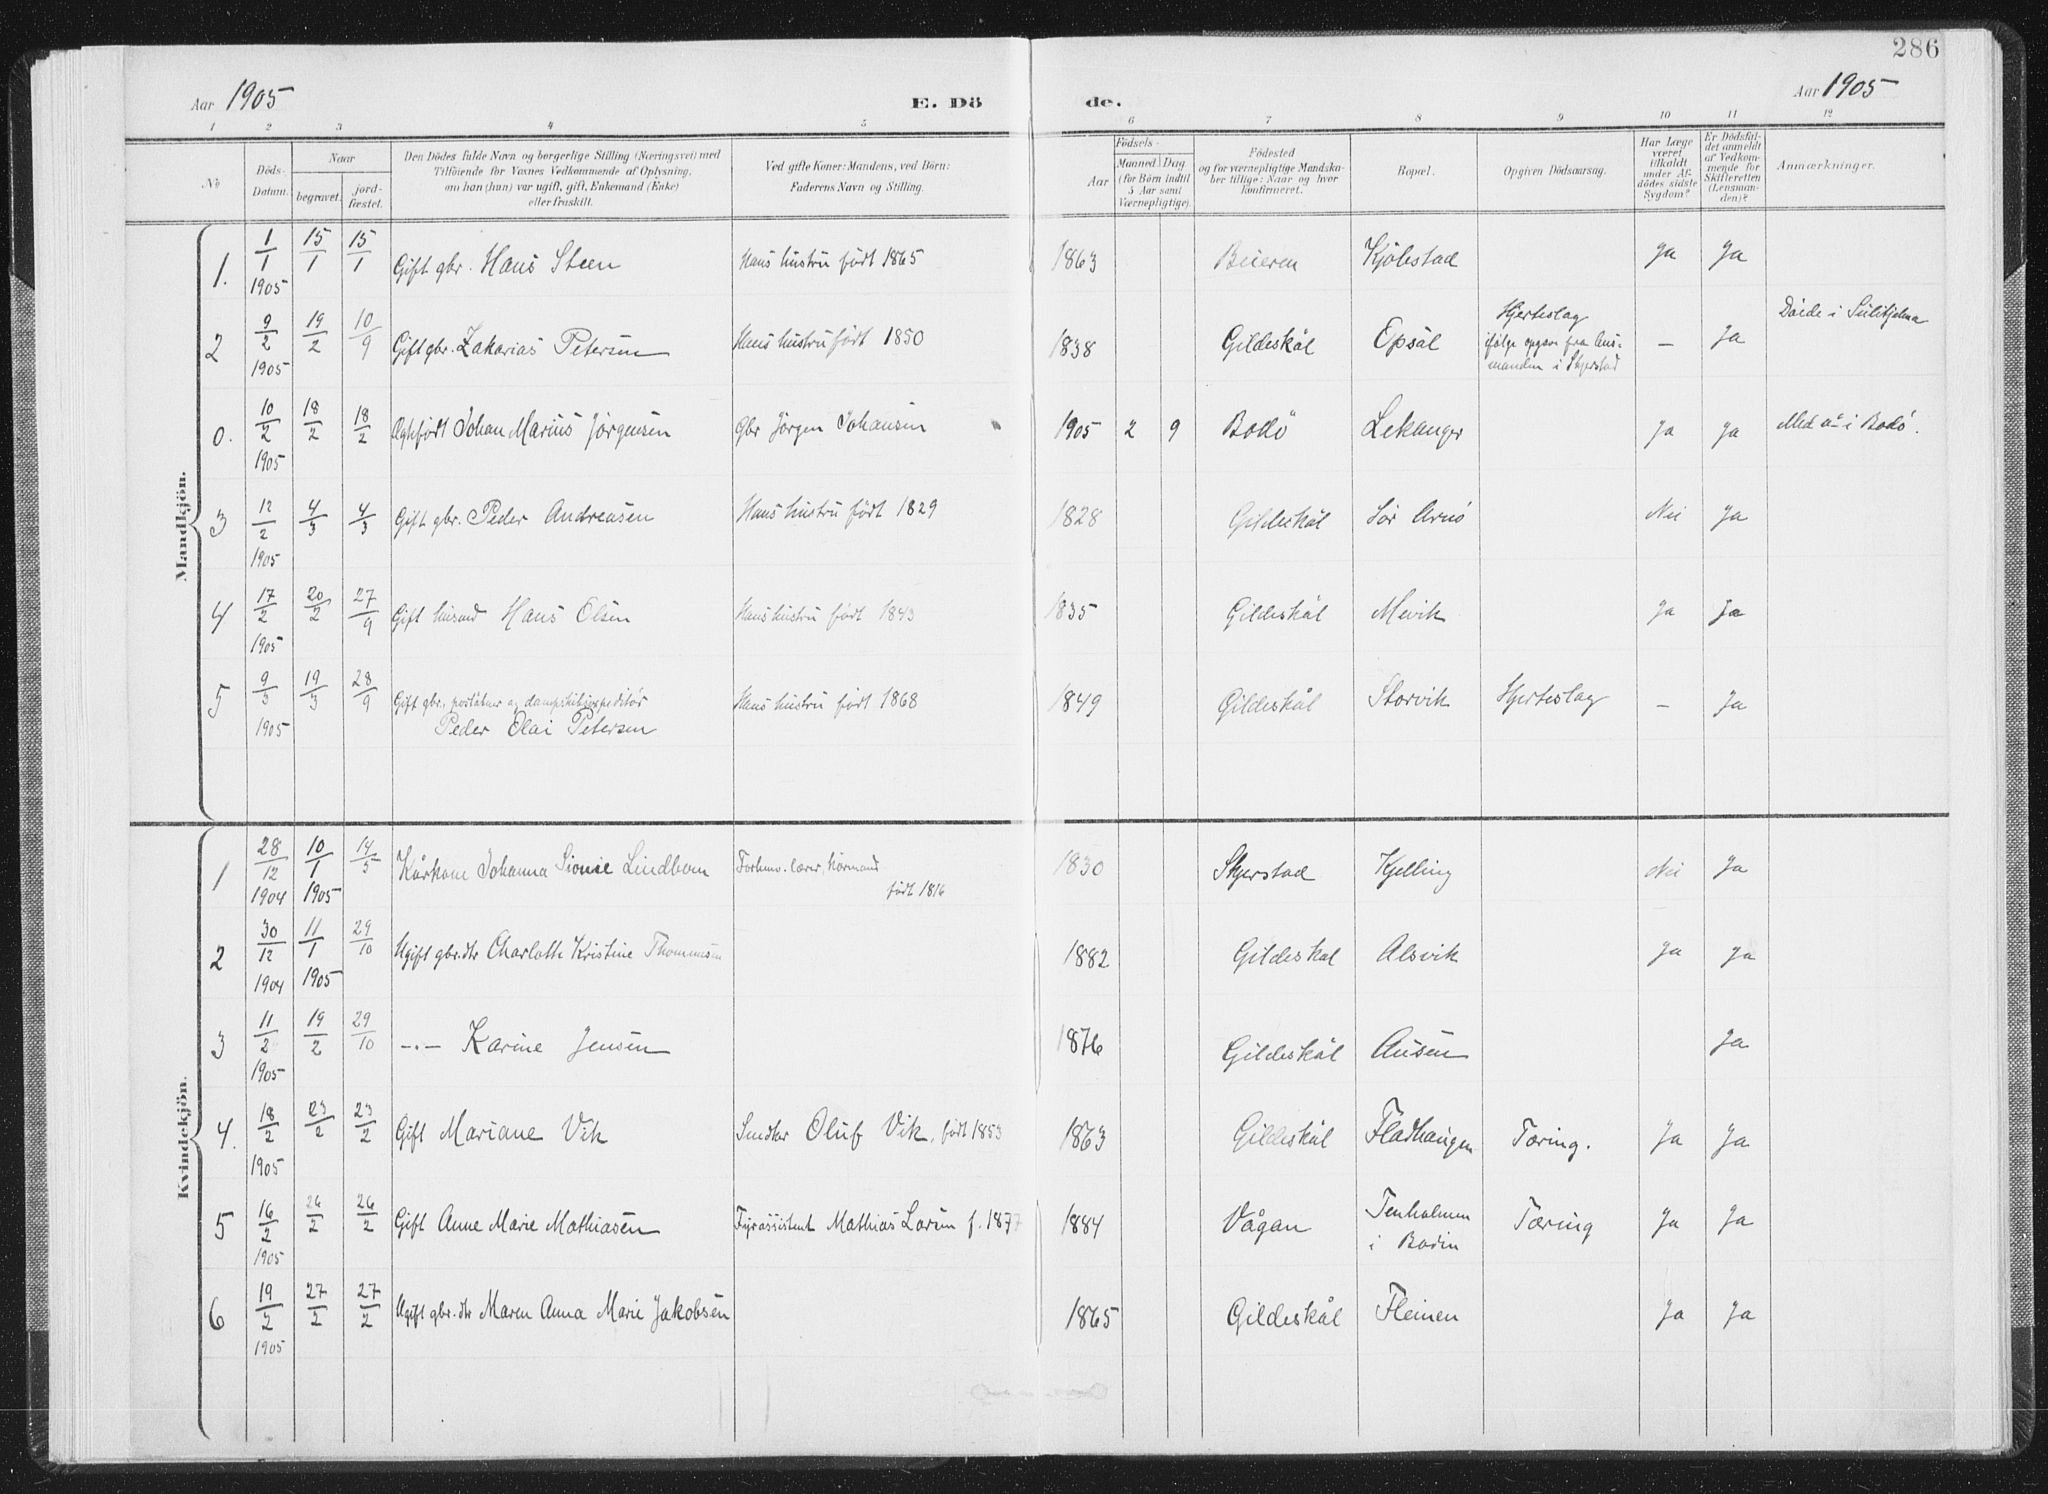 286
Aar 1905
E. Dö
de.
Aar 1905
1 2 3 4 5 6 7 8 9 10 11 12
No
Döds-
Datum.
Naar
begravet.
jord-
fæstet.
Den Dödes fulde Navn og borgerlige Stilling (Næringsvei) med
Tilföiende for Voxnes Vedkommende af Oplysning,
om han (hun) var ugift, gift, Enkemand (Enke)
eller fraskilt.
Ved gifte Koner: Mandens, ved Börn:
Faderens Navn og Stilling.
Födsels-
Aar
Maaned
Dag
(for Börn indtil
5 Aar samt
Værnepligtige).
Födested
og for værnepligtige Mandska-
ber tillige: Naar og hvor
konfirmeret.
Bopæl.
Opgiven Dödsaarsag.
Har Læge
været
tilkaldt
under Af-
dödes sidste
Sygdom?
Er Dödsfal-
det anmeldt
af Vedkom-
mende for
Skifteretten
(Lensman-
den)?
Anmærkninger.
Mandkjön.
1. 1/1 1905 15/1 15/1 Gift gbr. Hans Steen Hans hustru født 1865 1863 Beieren Kjölstad Ja Ja
2 9/2 1905 19/2 10/9 Gift gbr. Zakarias Petersen Hans hustru født 1850 1838 Gildeskål Opsal Hjerteslag
ifølge opgave fra
manden i Skjerstad — Ja Døide i Sulitjelma
0. 10/2 1905 18/2 18/2 Ægtefødt Johan Marius Jørgensen Gbr Jørgen Johansen 1905 2 9 Bodø Lekanger Ja Ja i Bodø.
3 12/2 1905 4/3 4/3 Gift gbr. Peder Andreasen Hans hustru født 1829 1828 Gildeskål Sør Arnø Nei Ja
4 17/2 1905 20/2 27/9 Gift husmd Hans Olsen Hans hustru født 1843 1835 Gildeskål Mevik Ja Ja
5 9/3 1905 19/3 28/9 Gift gbr., poståbner og dampskibsexpeditør
Peder Olai Petersen Hans hustru født 1868 1849 Gildeskål Storvik Hjerteslag — Ja
Kvindekjön.
1 28/12 1904 10/1 1905 14/5 Kårkone Johanna Lindbom Forhenv. lærer, kårmand
født 1816 1830 Skjerstad Kjelling Nei Ja
2 30/12 1904 11/1 1905 29/10 Ugift gbr.dtr Charlotte Kristine Thommesen 1882 Gildeskal Alsvik Ja Ja
3 11/2 1905 19/2 29/10 —.— Karine Jensen 1876 Gildeskål Ausen Ja
4. 18/2 1905 23/2 23/2 Gift Mariane Vik Oluf Vik, født 1853 1863 Gildeskål Fladhaugen Tæring. Ja Ja
5 16/2 1905 26/2 26/2 Gift Anne Marie Mathiasen Fyrassistent Mathias Larsen f. 1877 1884 Vågan Tenholmen
i Bodin Tæring Ja Ja
6 19/2 1905 27/2 27/2 Ugift gbr. dtr Maren Anna Marie Jakobsen 1865 Gildeskål Fleinen Ja Ja